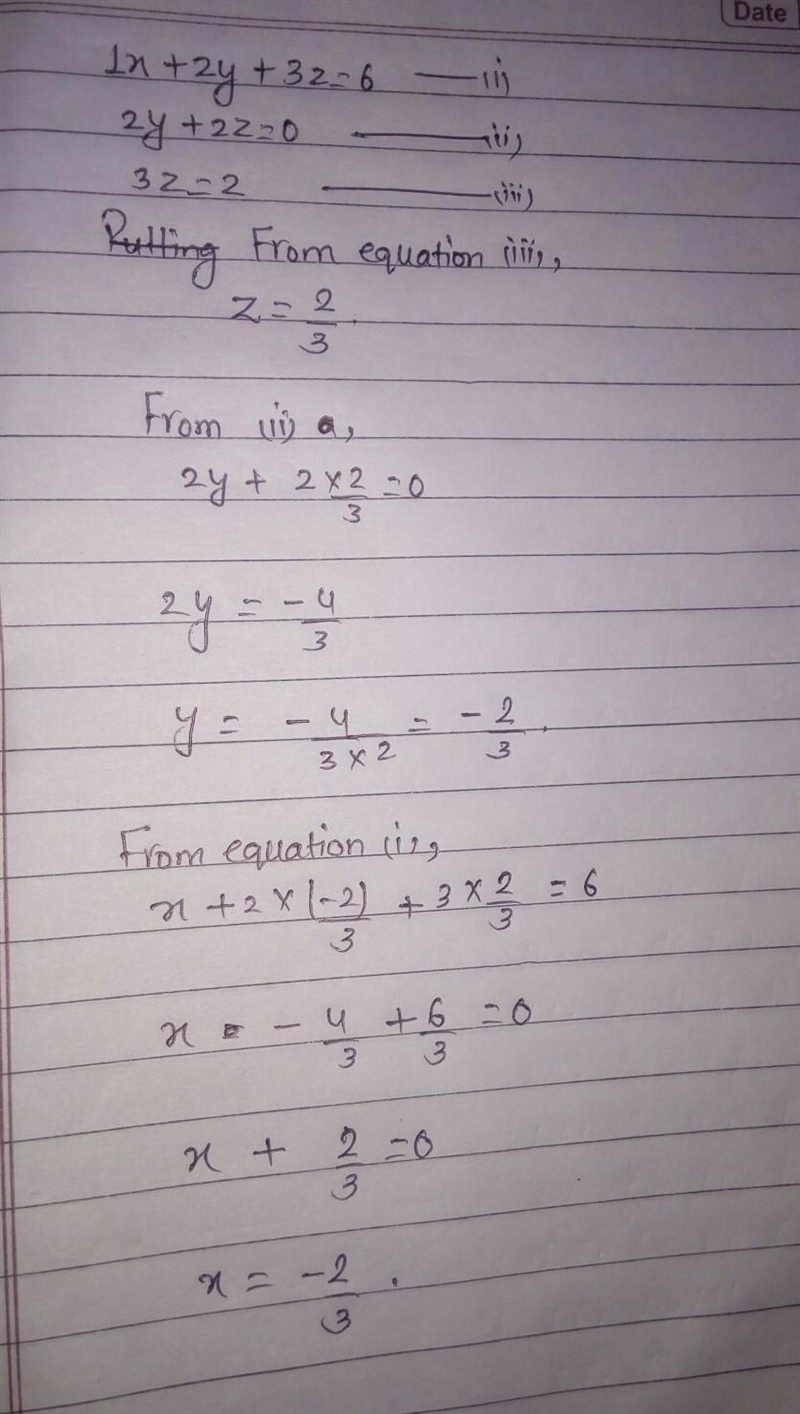 Date
1x + 2y + 3z = 6 —(i)
2y + 2z = 0 —(ii)
3z = 2 —(iii)
Putting From equation (iii),
z = 2/3.
From (ii) a,
2y + 2×2/3 = 0
2y = -4/3
y = -4/3×2 = -2/3.
From equation (i),
x + 2×(-2)/3 + 3×2/3 = 6
x - 4/3 + 6/3 = 0
x + 2/3 = 0
x = -2/3.